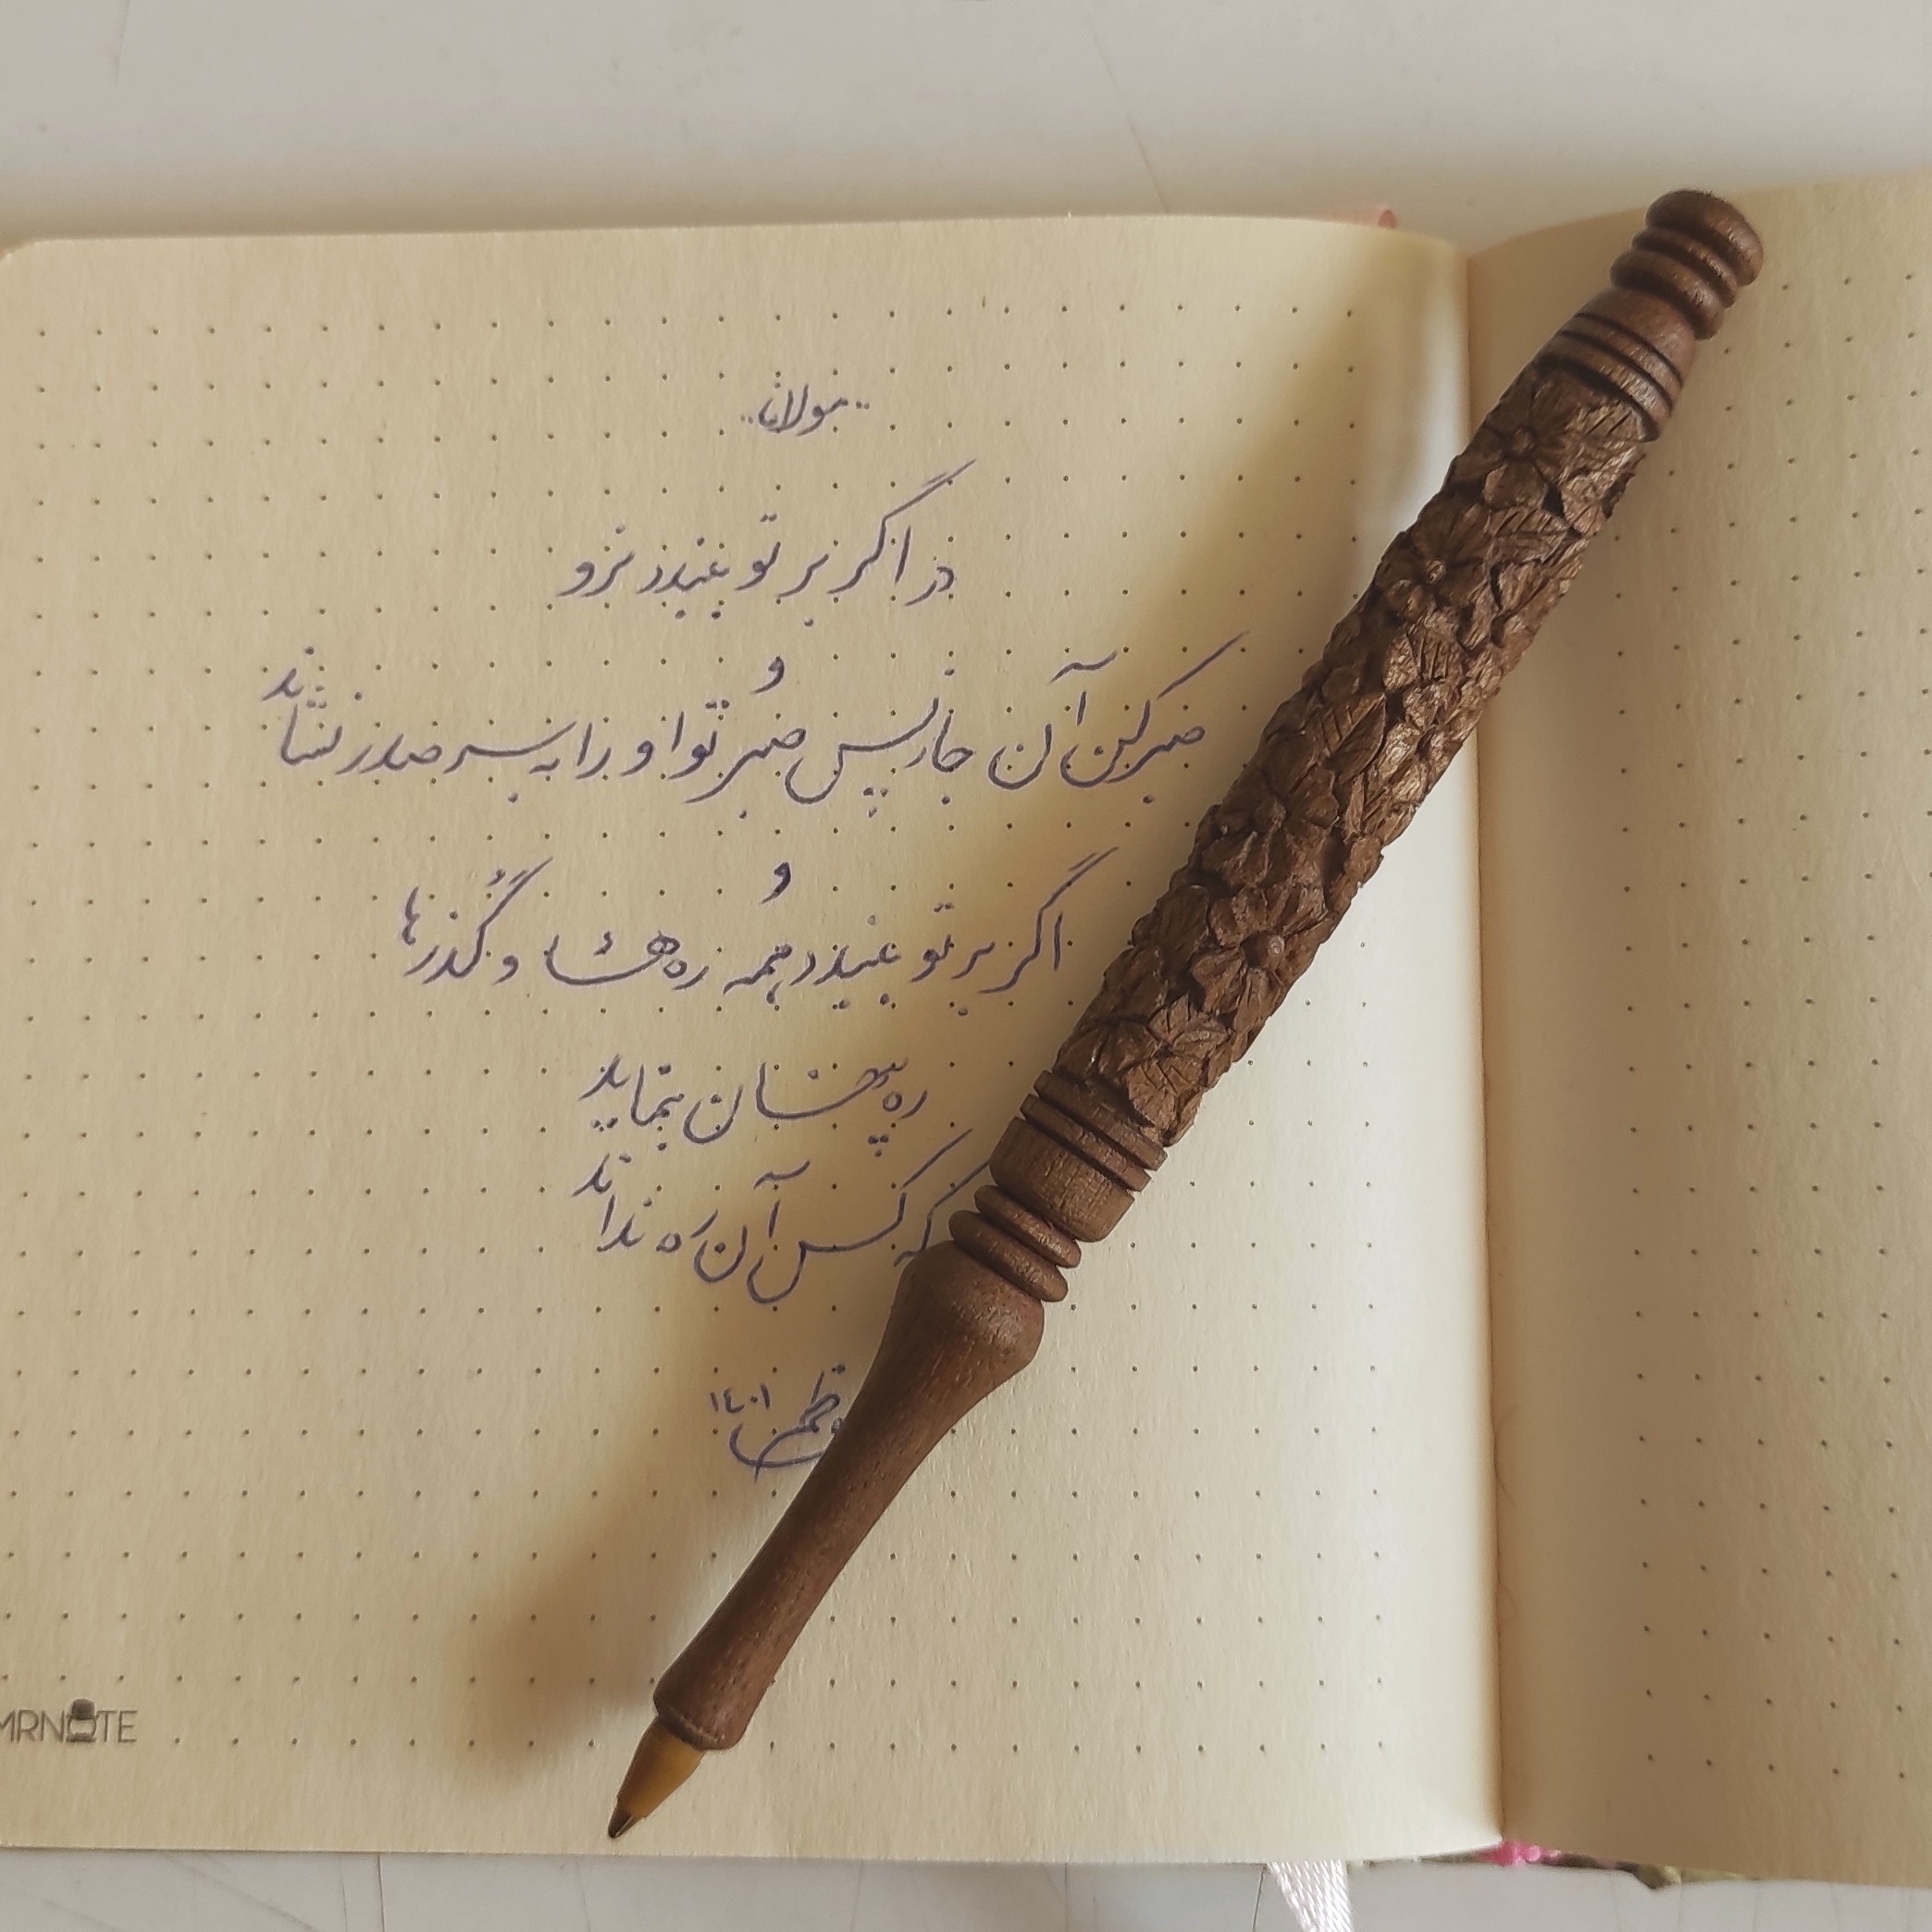 ..مولانا..
در اگر بر تو ببندد نرو
و
صبر کن آن جا ز پس صبر تو او را به سر صدر نشاند
و
اگر بر تو ببندد همه ره‌ها و گُذرها
ره پنهان بنماید
که کس آن ره نداند
۱۴۰۱
MRNOTE